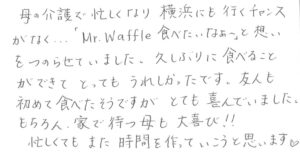 母の介護で忙しくなり 横浜にも行くチャンス
がなく…「Mr. Waffle 食べたいなぁ〜」と 想い
をつのらせていました。久しぶりに食べること
ができて とってもうれしかったです。友人も
初めて食べたそうですが とても喜んでいました。
もちろん、家で待つ母も大喜び!!
忙しくても また 時間を作っていこうと思います♡